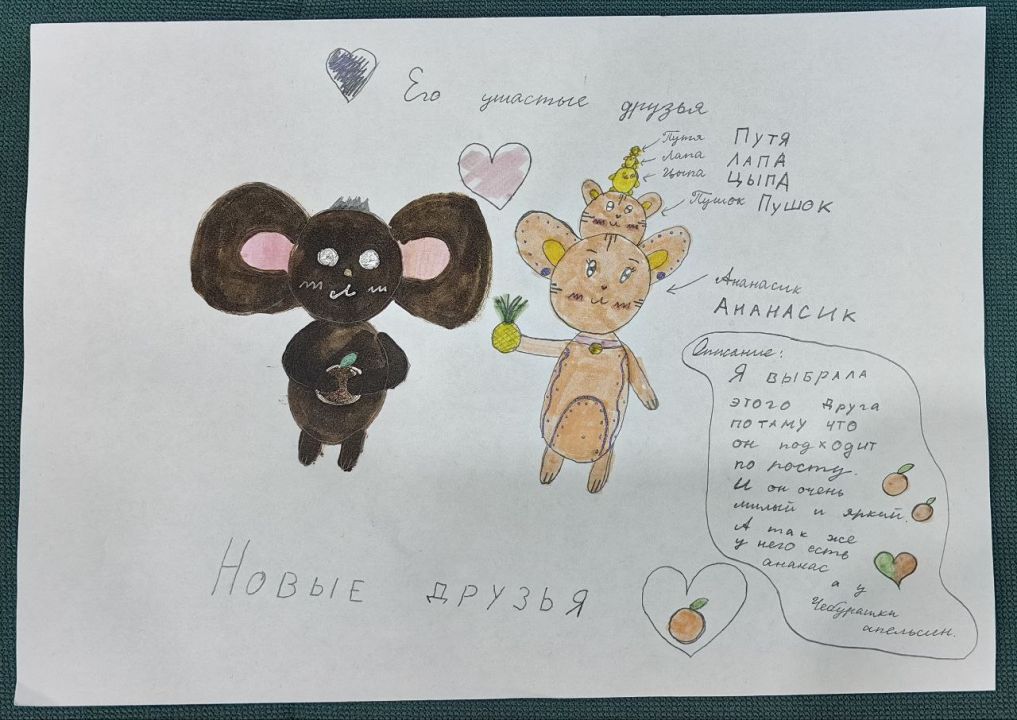 Его ушастые друзья
Путя ПУТЯ
Лапа ЛАПА
Цыпа ЦЫПА
Пушок ПУШОК
Ананасик
АНАНАСИК
Описание:
Я ВЫБРАЛА
ЭТОГО друга
ПОТАМУ ЧТО
ОН ПОДХОДИТ
по росту.
И он очень
милый и яркий.
А так же
у него есть
ананас
а у
Чебурашки
апельсин.
НОВЫЕ ДРУЗЬЯ